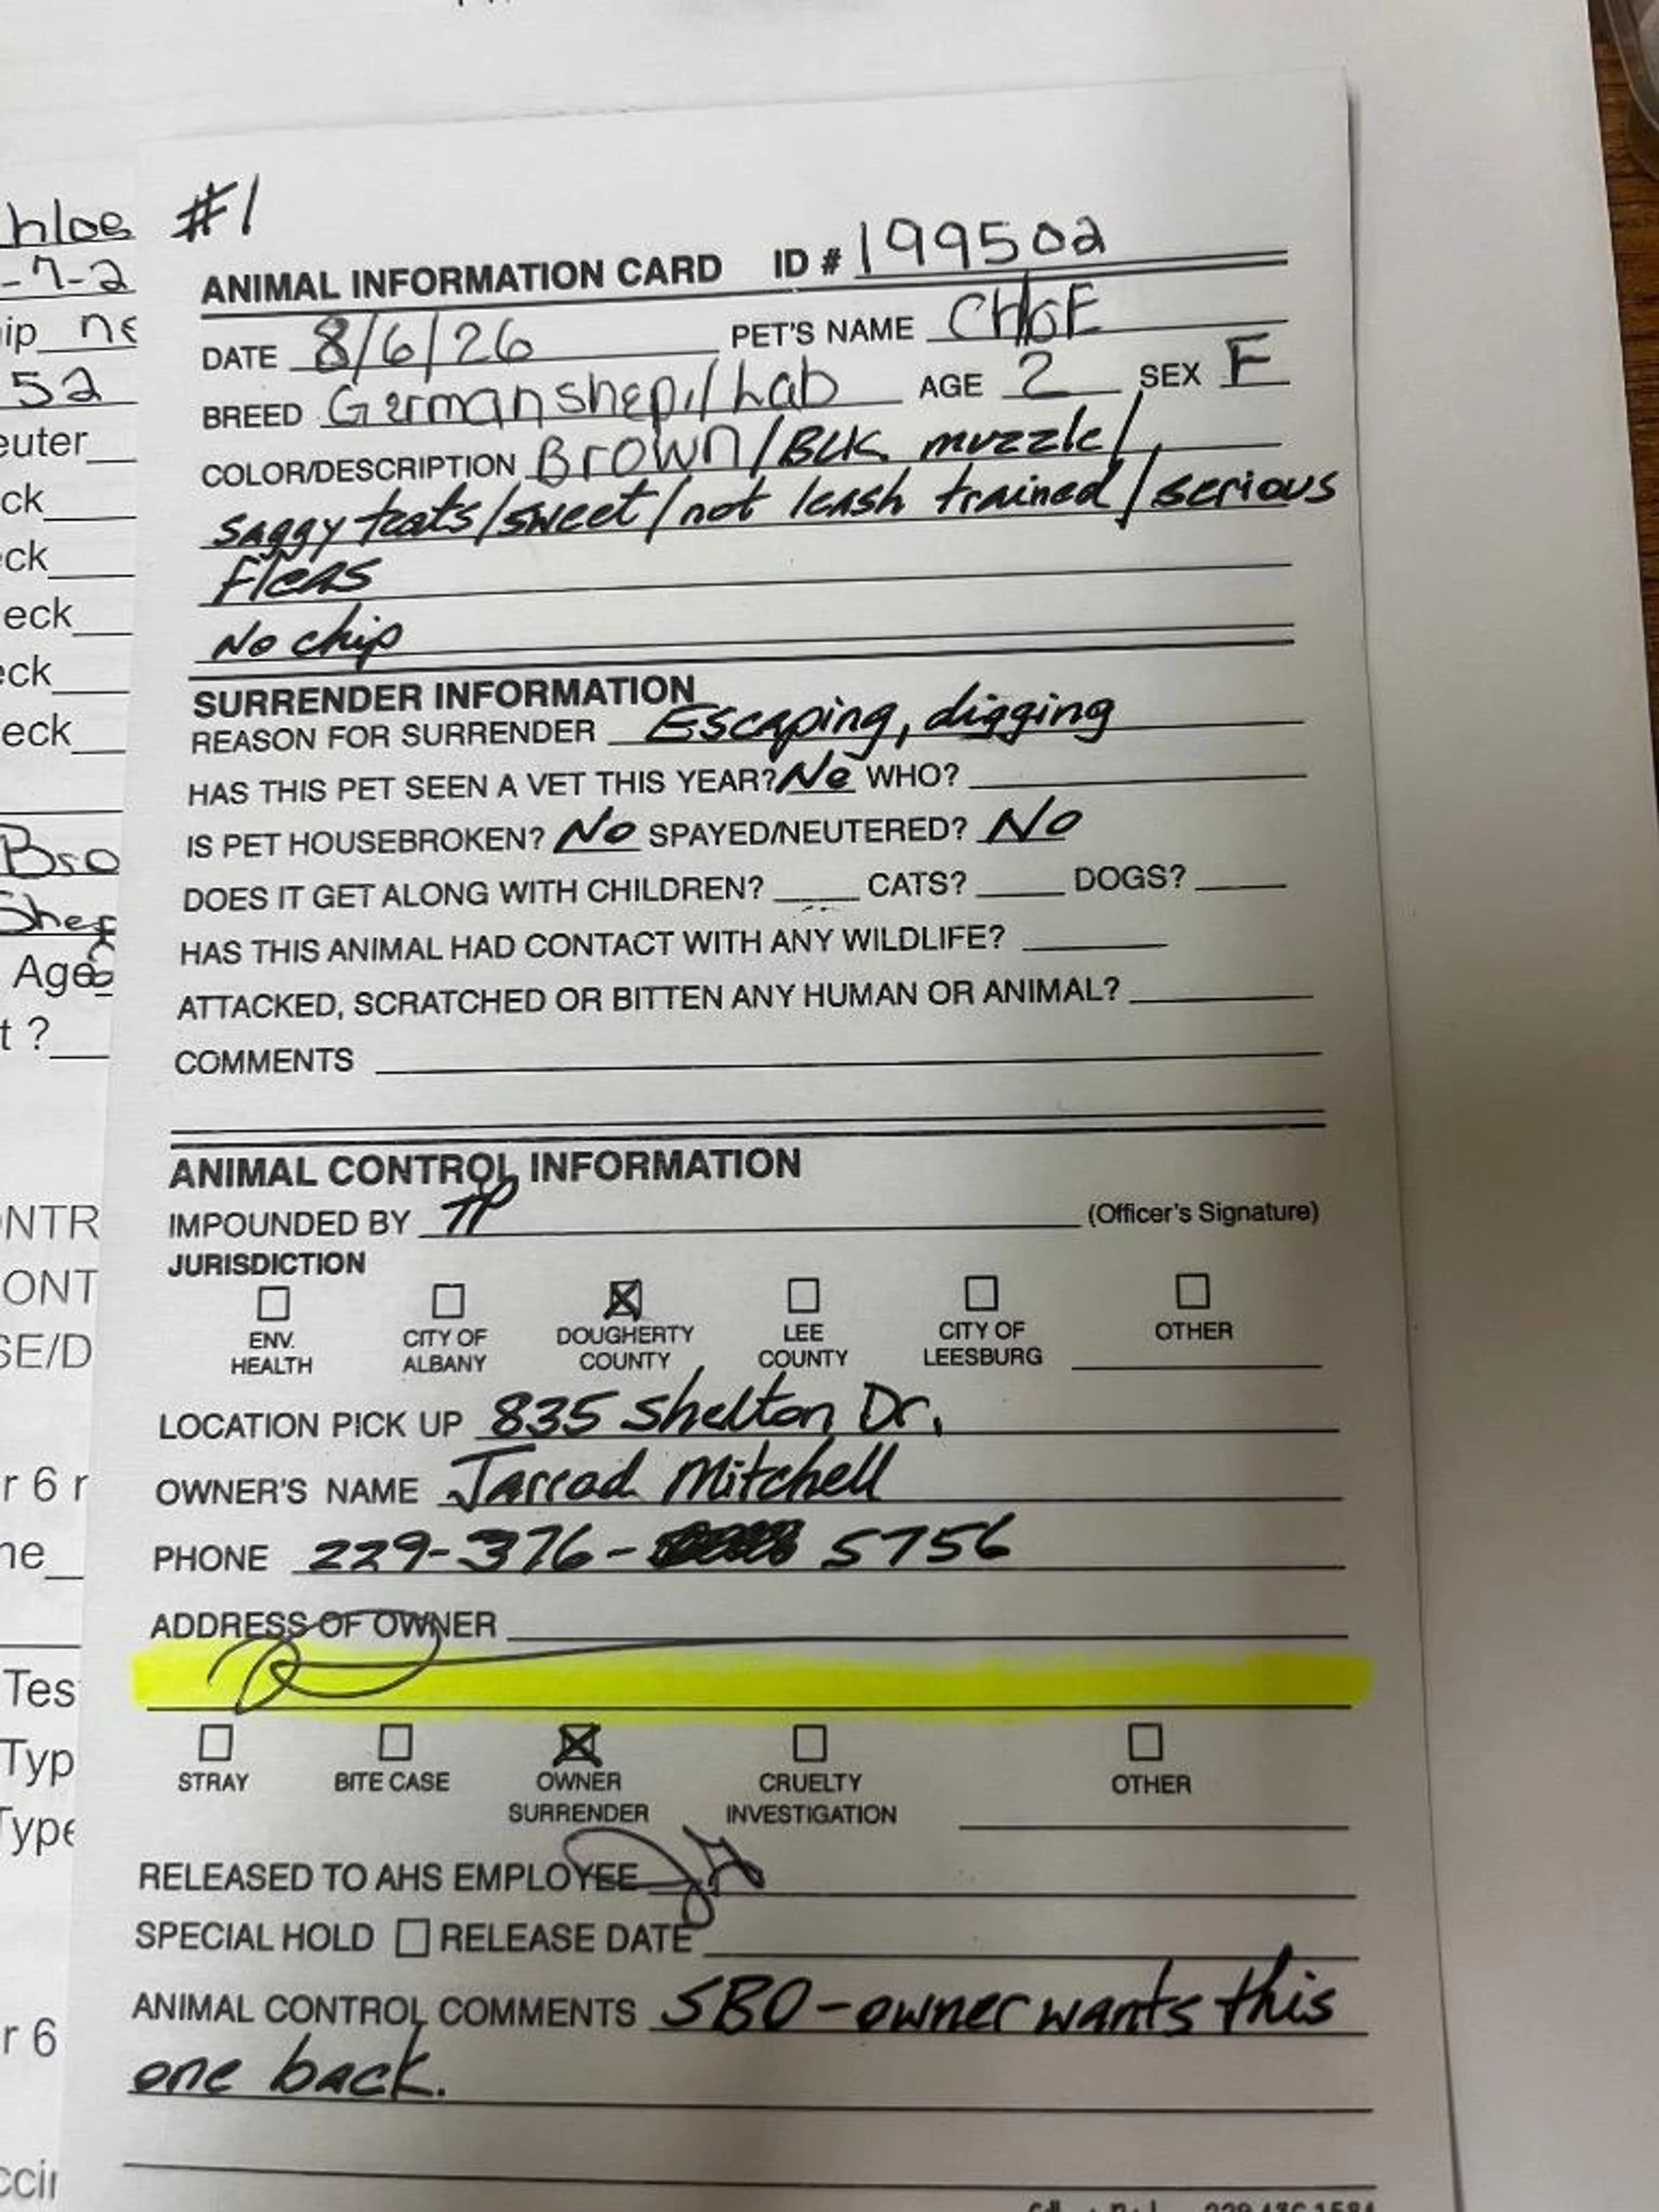 hloe
-7-2
ip ne
52
euter
ck
ck
eck
eck
eck
Bro
Shep
Age
t ?
ONTR
ONT
SE/D
r 6 r
ne
Tes
Typ
Type
r 6
ccir
#1
ANIMAL INFORMATION CARD ID # 199502
DATE 8/6/26 PET'S NAME CHloE
BREED German shep./Lab AGE 2 SEX F
COLOR/DESCRIPTION Brown/BLK muzzle/
saggy teats/sweet/not leash trained/serious
Fleas
No chip
SURRENDER INFORMATION
REASON FOR SURRENDER Escaping, digging
HAS THIS PET SEEN A VET THIS YEAR? No WHO?
IS PET HOUSEBROKEN? No SPAYED/NEUTERED? No
DOES IT GET ALONG WITH CHILDREN? CATS? DOGS?
HAS THIS ANIMAL HAD CONTACT WITH ANY WILDLIFE?
ATTACKED, SCRATCHED OR BITTEN ANY HUMAN OR ANIMAL?
COMMENTS
ANIMAL CONTROL INFORMATION
IMPOUNDED BY TP (Officer's Signature)
JURISDICTION
ENV. HEALTH CITY OF ALBANY DOUGHERTY COUNTY LEE COUNTY CITY OF LEESBURG OTHER
LOCATION PICK UP 835 Shelton Dr.
OWNER'S NAME Jarrad Mitchell
PHONE 229-376- 5756
ADDRESS OF OWNER
STRAY BITE CASE OWNER SURRENDER CRUELTY INVESTIGATION OTHER
RELEASED TO AHS EMPLOYEE
SPECIAL HOLD RELEASE DATE
ANIMAL CONTROL COMMENTS SBO - owner wants this
one back.